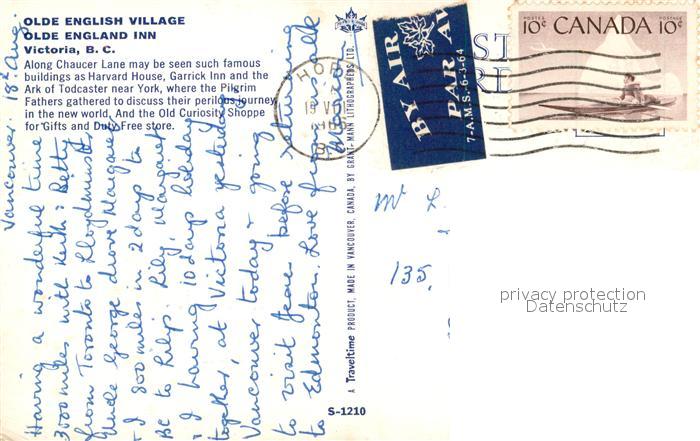 OLDE ENGLISH VILLAGE
OLDE ENGLAND INN
Victoria, B. C.
Along Chaucer Lane may be seen such famous
buildings as Harvard House, Garrick Inn and the
Ark of Todcaster near York, where the Pilgrim
Fathers gathered to discuss their perilous journey
in the new world. And the Old Curiosity Shoppe
for Gifts and Duty Free store.
Vancouver 18th Aug
Having a wonderful time
3000 miles with Keith & Betty
from Toronto to Lloydminster
Uncle George drove Margaret
& I 800 miles in 2 days to
BC to Lily. Margaret
& I having 10 days holiday
together, at Victoria yesterday
Vancouver today & going
to visit before returning
to Edmonton. Love from
S-1210
A Traveltime PRODUCT, MADE IN VANCOUVER, CANADA, BY GRANT-MANN LITHOGRAPHERS LTD.
BY AIR
PAR AV
7-A.M.S.-6-3-64
HOPE
POSTES POSTAGE
10¢ CANADA 10¢
Mr L
135,
privacy protection
Datenschutz